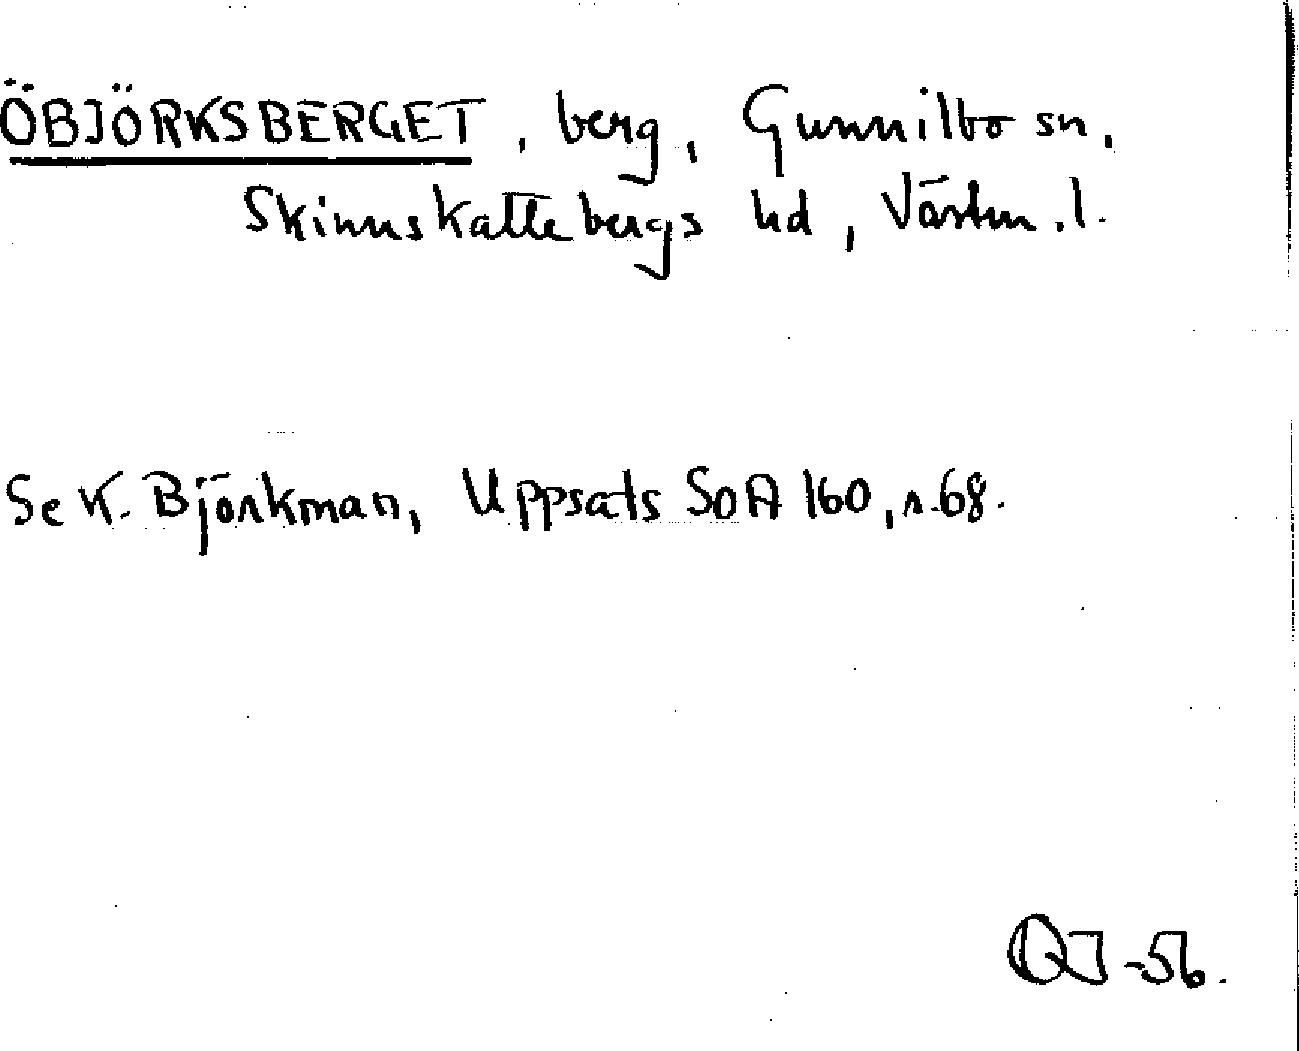 ÖBJÖRKSBERGET, berg, Gunnilbo sn,
Skinnskattebergs hd, Västm. l.
Se K. Björkman, Uppsats SOA 160, s. 68.
OJ -56.